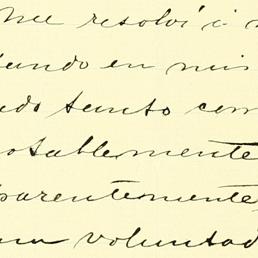 me resolví i
ando en mis
do tanto com
otablemente
parentemente,
una voluntad